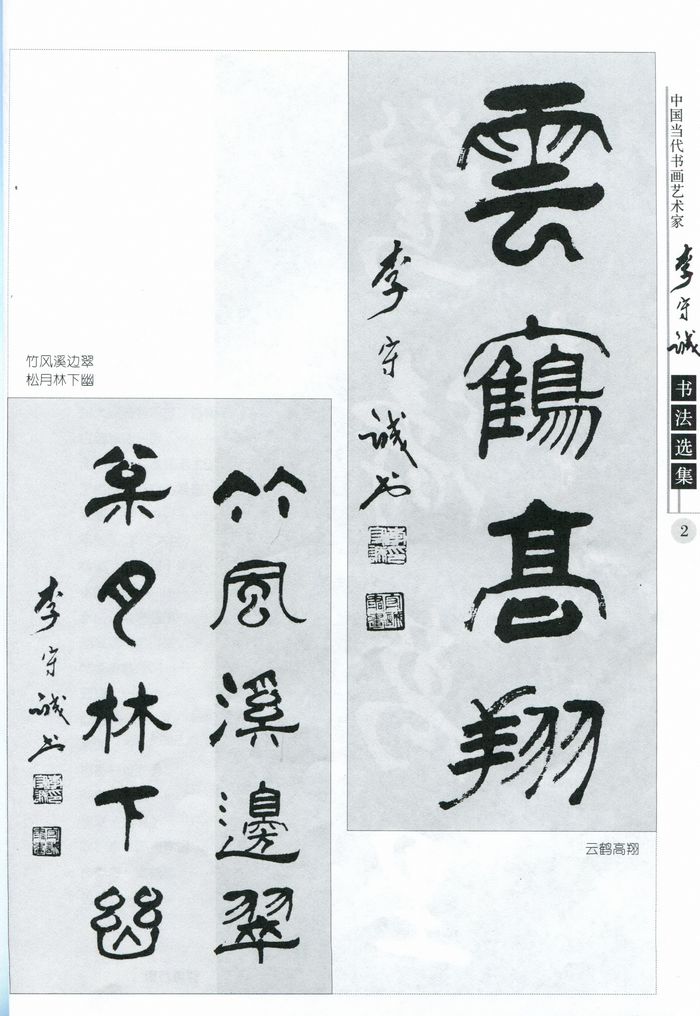 中国当代书画艺术家
李守诚
书法选集
2
雲鶴高翔
李守诚书
云鹤高翔
竹风溪边翠
松月林下幽
竹風溪邊翠
枩月林下幽
李守诚书